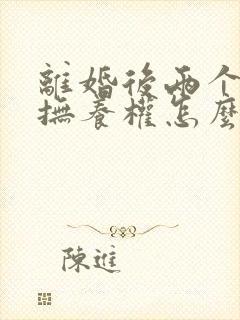 離婚後兩个
撫養權怎麼
陳進